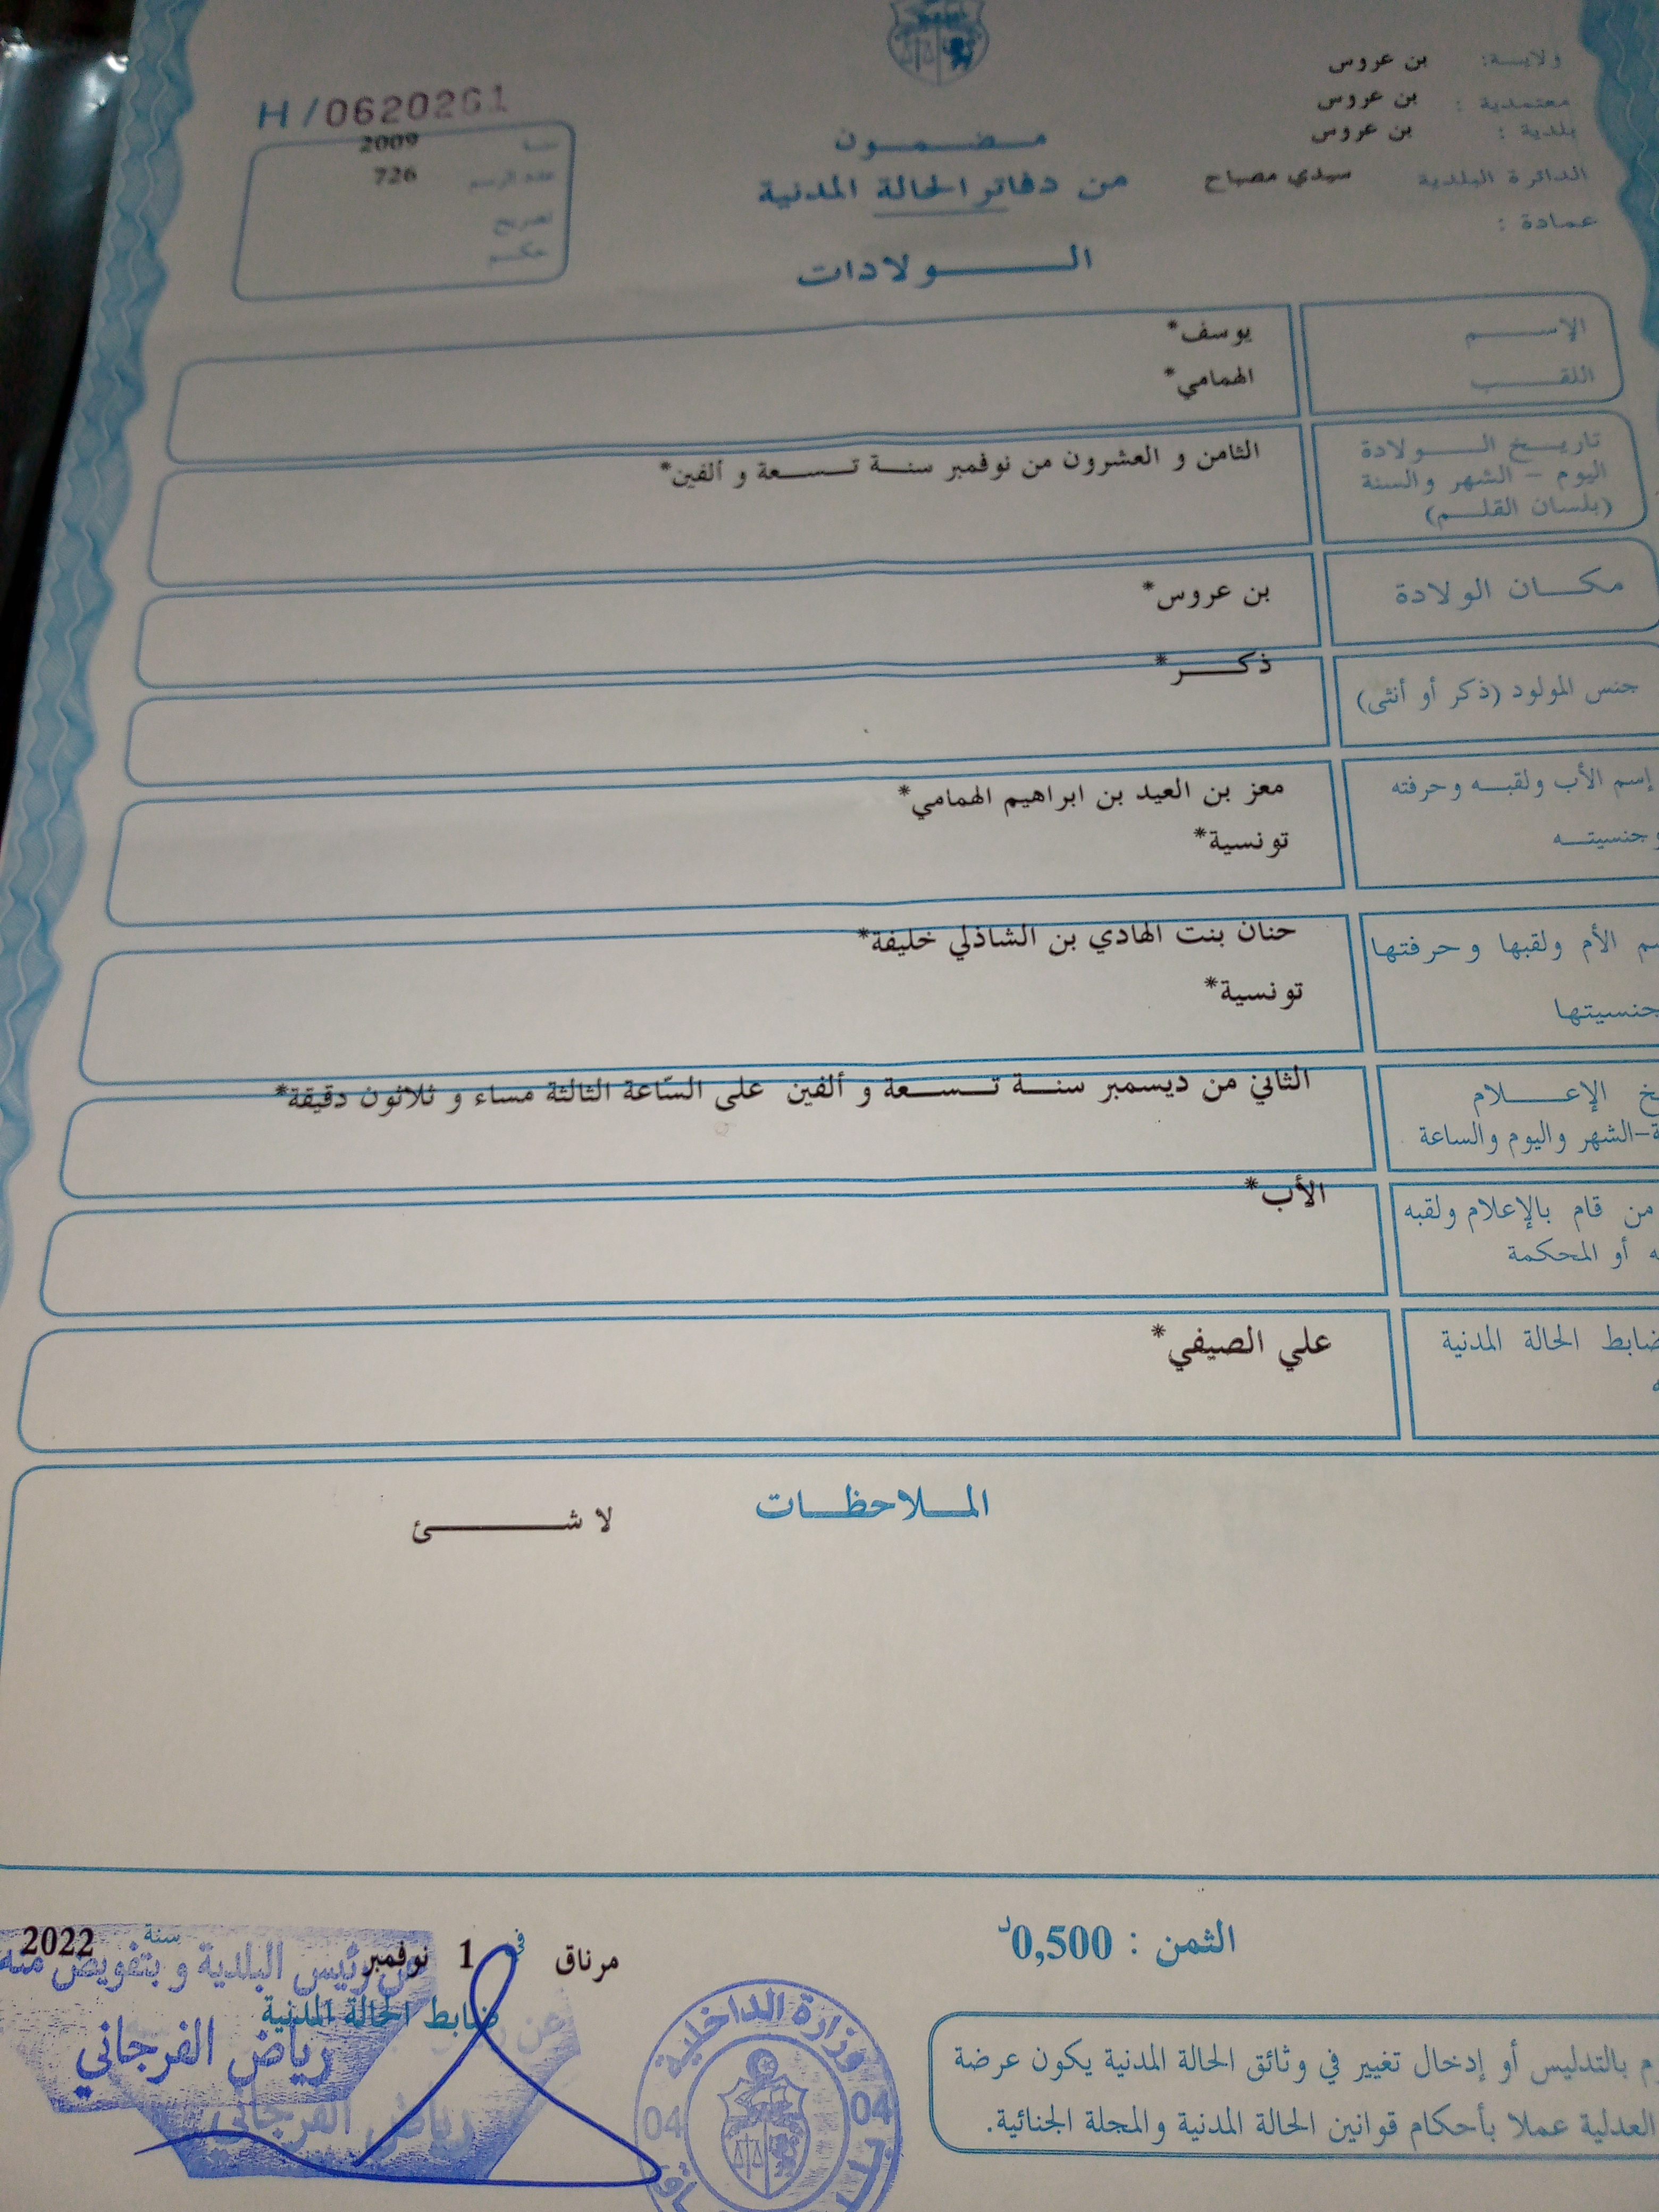 ولاية: بن عروس
معتمدية : بن عروس
بلدية : بن عروس
الدائرة البلدية سيدي مصباح
عمادة :
مضمون
من دفاتر الحالة المدنية
الولادات
H/0620261
سنة 2009
عدد الرسم 726
تصريح
حكم
الإسم يوسف*
اللقب الهمامي*
تاريخ الولادة
اليوم - الشهر والسنة
(بلسان القلم)
الثامن و العشرون من نوفمبر سنة تسعة و ألفين*
مكان الولادة بن عروس*
جنس المولود (ذكر أو أنثى) ذكر*
إسم الأب ولقبه وحرفته معز بن العيد بن ابراهيم الهمامي*
وجنسيته تونسية*
الأم ولقبها وحرفتها حنان بنت الهادي بن الشاذلي خليفة*
جنسيتها تونسية*
الإعلام
الشهر واليوم والساعة
الثاني من ديسمبر سنة تسعة و ألفين على السّاعة الثالثة مساء و ثلاثون دقيقة*
من قام بالإعلام ولقبه الأب*
أو المحكمة
ضابط الحالة المدنية علي الصيفي*
الملاحظات
لا شئ
الثمن : 0,500د
مرناق في 1 نوفمبر سنة 2022
ضابط الحالة المدنية
عن رئيس البلدية و بتفويض منه
رياض الفرجاني
رياض الفرجاني
وزارة الداخلية
04 04
بالتدليس أو إدخال تغيير في وثائق الحالة المدنية يكون عرضة
العدلية عملا بأحكام قوانين الحالة المدنية والمجلة الجنائية.